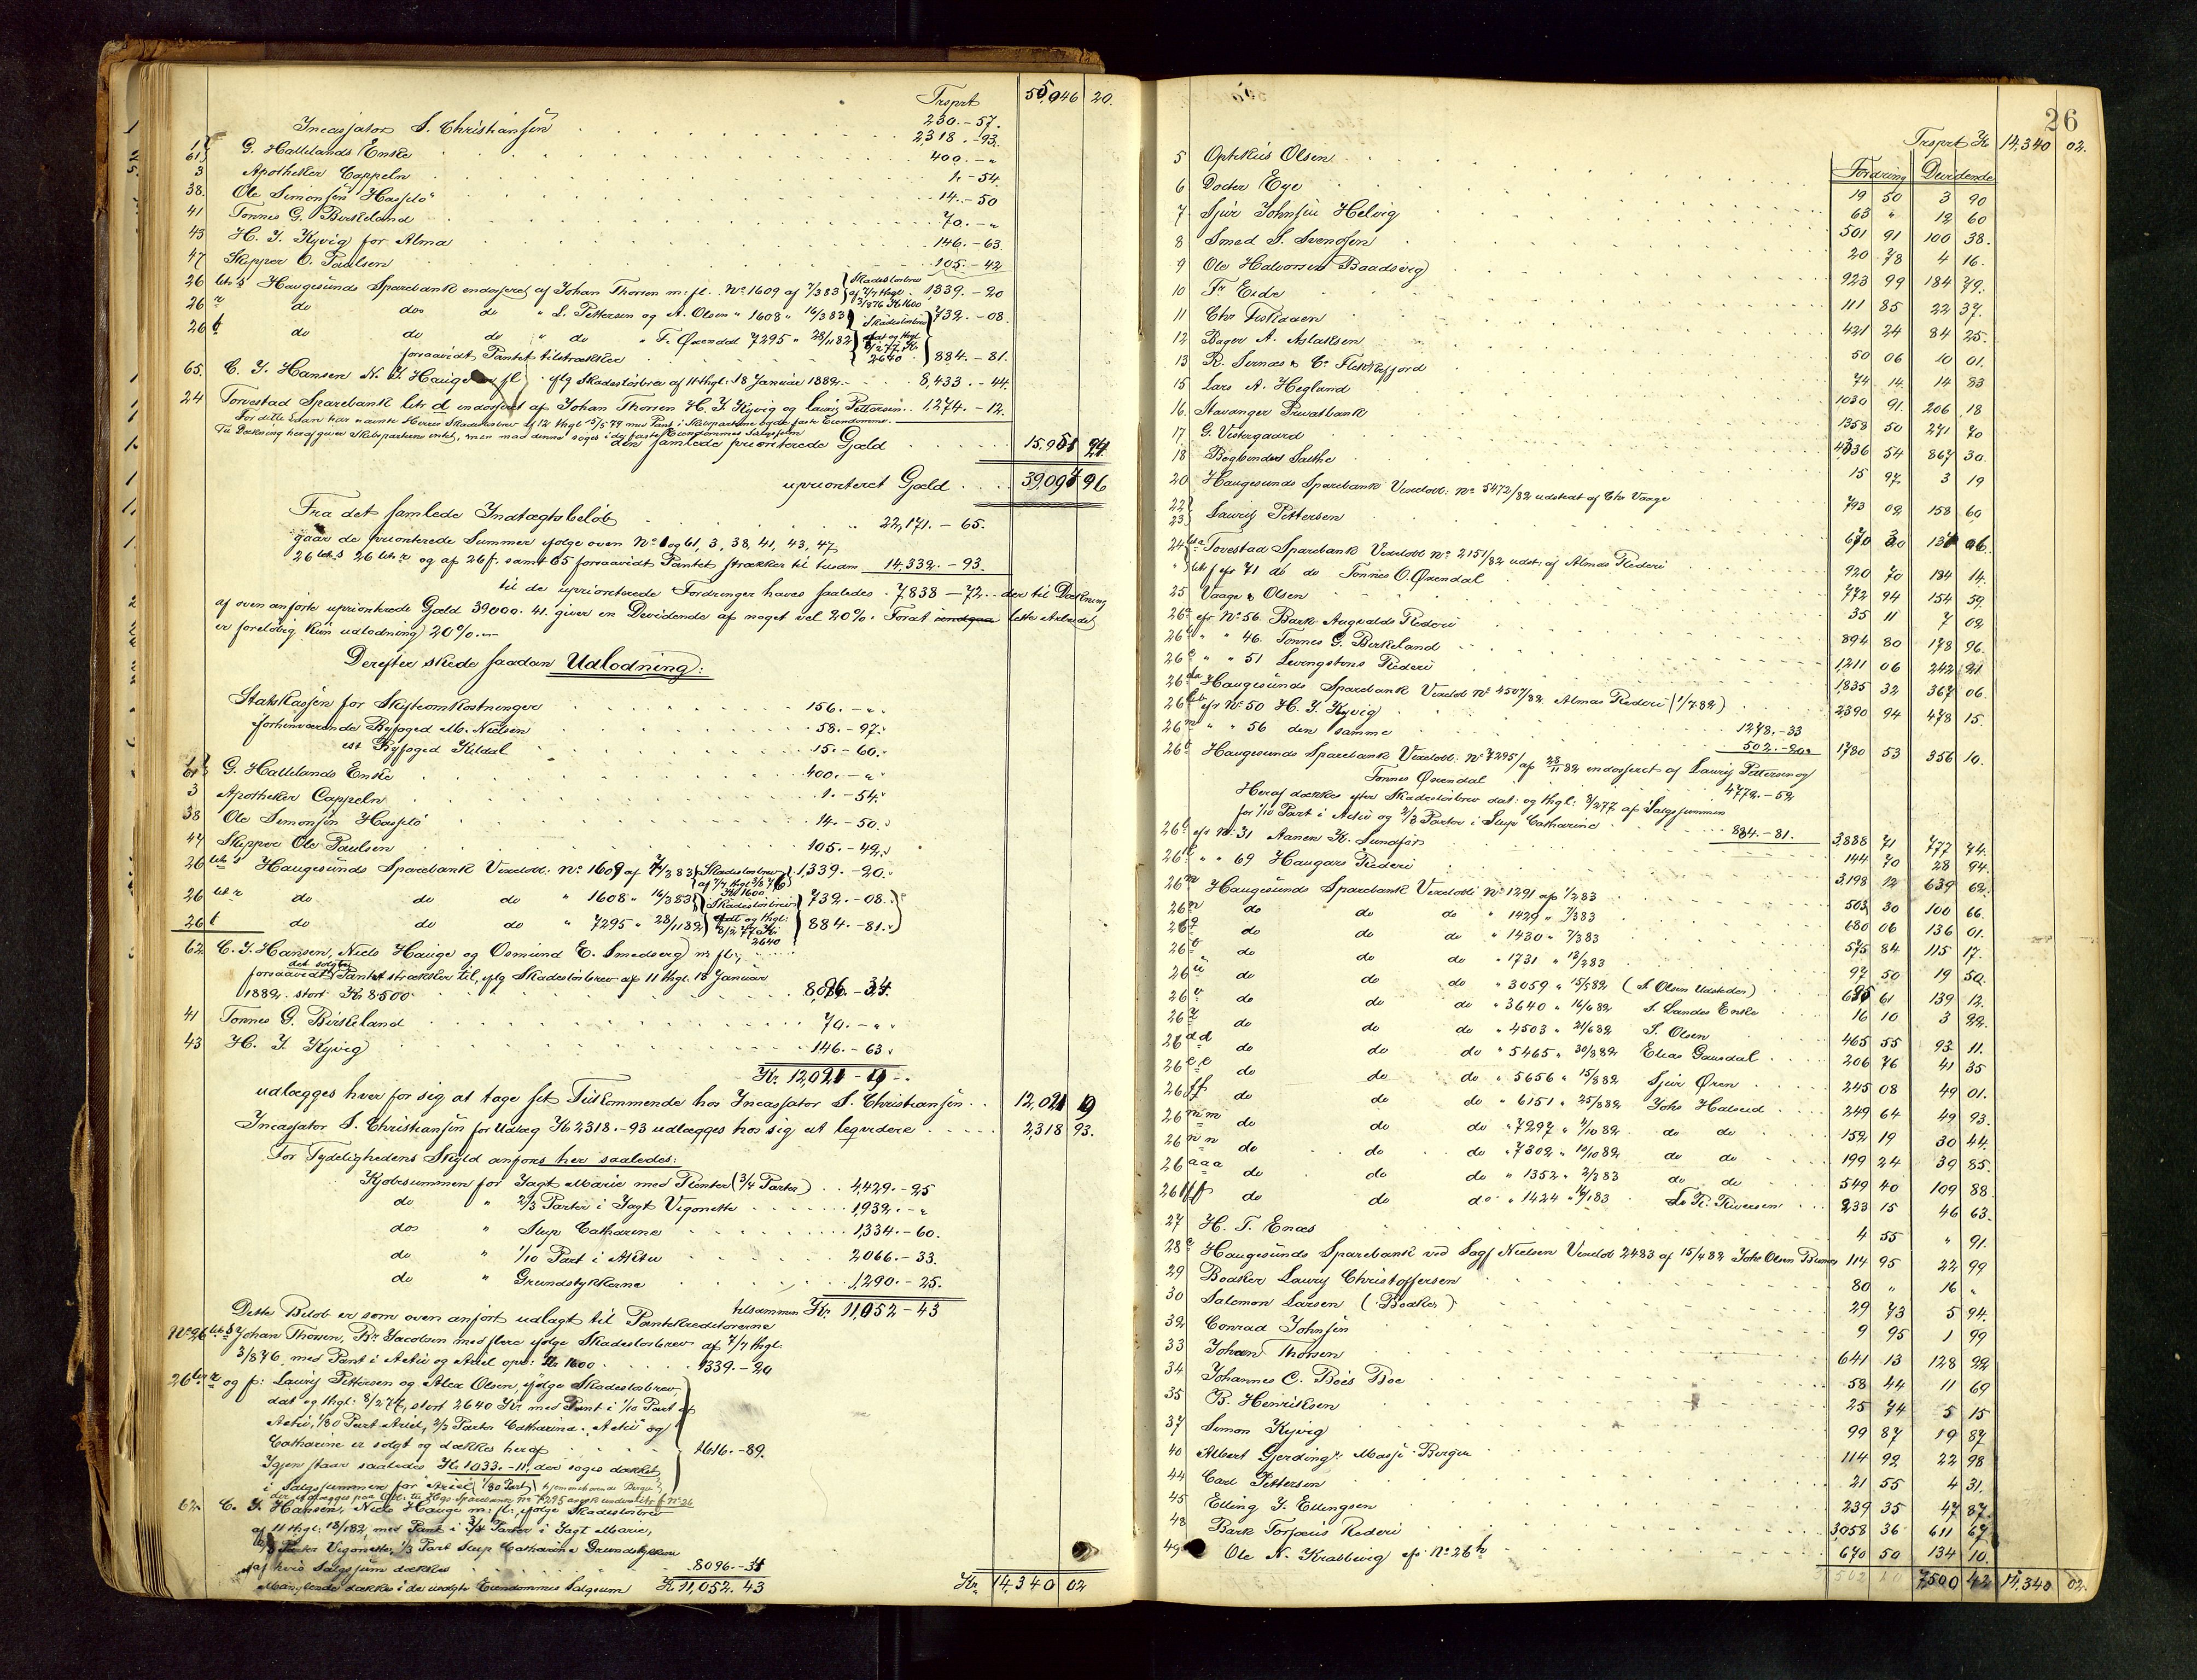 Trsprt 55,046 20.
Incassator S. Christiansen . . . 230.-57.
2318.-93.
1 61 G. Hallelands Enke . . . 400.-"
3 Apotheker Cappeln . . . 1.-54.
38. Ole Simonsen "Hasslø" . . . 14.-50
41 Tonnes G. Birkeland . . . 70.-"
43 H. J. Kyvig for Alma . . . 146.-63.
47 Skipper O. Paulsen . . . 105.-42
26 litr s Haugesunds Sparebank endosseret af Johan Thorsen m: fl. No 1609 af 7/3 83 Skadesløsbrev af 7/7 thgl. 3/8 76 Kr 1600 1339.-20
26 r do dos do " L. Pettersen og A. Olsen " 1608 " 16/3 83 Skadesløsbrev 732.-08.
26 f do do do " do " T. Øvendal 7295 " 28/11 82 dat og thgl 8/2 77 Kr. 2640 884.-81.
forsaavidt Pantet tilstrækker
65. C. J. Hansen N. J. Hauge m fl iflg Skadesløsbrev af 11 thgl. 18 Januar 1882. . . 8,433.-44.
24 Torvestad Sparebank litr d endosseret af Johan Thorsen H. J. Kyvig og Lauritz Pettersen. 1,274.-12.
For dette Laan har nævnte Herrer Skadesløsbrev af 12 thgl 15/5 79 med Pant i Skibsparterne og de faste Eiendomme.
Til Dækning heraf giver Skibsparterne intet, men maa denne søges i de faste Eiendommes Salgssum
den samlede priorterede Gjæld . . . 15,951 24.
upriorteret Gjæld . . . 39,094 96
Fra det samlede Indtægtsbeløb . . . 22,171.-65.
gaar de priorterede Summer ifølge oven No 1 og 61, 3, 38, 41, 43, 47
26 litr s 26 litr r og af 26 f. samt 65 forsaavidt Pantet strækker til tilsam. 14,332.-93.
til de upriorterede Fordringer haves saaledes . 7838-72. der til Dækning
af ovenanførte upriorterede Gjæld 39000.41. giver en Devidende af noget vel 20%. For at lette Arbeidet
er foreløbig kun udlodning 20%.
Derefter skede saadan Udlodning:
Statskassen for Skifteomkostninger . . . 156.-"
forhenværende Byfoged M. Nielsen . . . 58.-97.
cst Byfoged Kildal . . . 15.-60.
1 61 G. Hallelands Enke . . . 400.-"
3 Apotheker Cappeln . . . 1.-54.
38 Ole Simonsen Hasslø . . . 14.-50.
47 Skipper Ole Paulsen . . . 105.-42.
26 litr s Haugesunds Sparebank Vexelobl. No 1609 af 7/3 83 Skadesløsbrev af 7/7 thgl 3/8 76 Kr 1600 1,339.-20.
26 litr r do do do " 1608 " 16/3 83 Skadesløsbrev 732.-08.
26 f do do do " 7295 " 28/11 82 dat og thgl: 8/2 77 Kr. 2640 884.-81.
62 C. J. Hansen, Niels Hauge og Osmund E. Smedsvig m: fl:,
forsaavidt det solgte Pantet strækker til, iflg Skadesløsbrev af 11 thgl 18 Januar
1882. stort Kr 8500 . . . 8096.-34.
41 Tonnes G. Birkeland . . . 70.-"
43 H. J. Kyvig . . . 146.-63.
Kr. 12,021-19
udlægges hver for sig at tage sit Tilkommende hos Incassator S. Christiansen . . 12,021 19
Incassator S. Christiansen for Udlæg Kr 2318.-93 udlægges hos sig at leqvidere . . . 2,318 93.
For Tydelighedens Skyld anføres her saaledes:
Kjøbesummen for Jagt Marie med Renter (3/4 Parter) . . 4,429.-25
do " 2/3 Parter i Jagt Vigonette . . . 1932.-"
dos " Slup Catharine . . . 1,334.-60.
do " 1/10 Part i Aktiv . . . 2066.-33.
do " Grundstykkerne . . . 1,290.-25.
tilsammen Kr. 11,052-43
Dette Beløb er som oven anført udlagt til Pantekreditorerne
No 26 litr s Johan Thorsen, Br. Jacobsen med flere ifølge Skadesløsbrev af 7/7 thgl.
3/8 76 med Pant i Aktiv og Ariel opr: Kr 1600 . . . 1339.-20
26 litr r og f: Lauritz Pettersen og Alex Olsen, ifølge Skadesløsbrev,
dat og thgl: 8/2 77, stort 2640 Kr med Pant i 1/10 Part af
Aktiv, 1/80 Part Ariel, 2/3 Parter Catharina. Aktiv og
Catharine er solgt og dækkes heraf . . . 1616.-89.
Igjen staar saaledes Kr 1033.-11, der søges dækket
i Salgssummen for Ariel (1/80 Part)
62. C. J. Hansen, Niels Hauge m: fl:, ifølge Skadesløsbrev
af 11 thgl: 18/1 82, med Pant i 3/4 Parter i Jagt Marie,
2/3 Parter Vigonette, 1/3 Part Slup Catharine Grundstykkerne
af hvis Salgssum dækkes . . . 8096.-34
Manglende dækkes i de usolgte Eiendommes Salgsum Kr 11,052.43
Kr. 14,340 02
26
Trsprt Kr 14,340 02.
Fordring Devidende
5 Optikus Olsen . . . 19 50 3 90
6 Doctor Eye . . . 63 " 12 60
7 Sjur Johnsen Helvig . . . 501 91 100 38.
8 Smed S. Svendsen . . . 20 78 4 16.
9 Ole Halvorsen Baadsvig . . . 923 99 184 79.
10 Fr Eide . . . 111 85 22 37.
11 Chr Fiskaaen . . . 421 24 84 25.
12 Bager A. Aslaksen . . . 50 06 10 01.
13 R. Sirnæs & Co Flekkefjord . . . 74 14. 14 83
15 Lars A. Hegland . . . 1030 91. 206 18
16. Stavanger Privatbank . . . 1358 50 271 70
17 G. Vestergaard . . . 4336 54 867 30.
18 Bogbinder Salthe . . . 15 97. 3 19
20 Haugesunds Sparebank Vexelobl: No 5472/82 udstedt af Chr Vaage . . . 793 02 158 60
22 23 Lauritz Pettersen . . . 670 30 134 06.
24 litr a Torvestad Sparebank Vexelobl No 2151/82 udst: af Almas Rederi . . . 920 70 184 14.
" litr f efr 71 do do Tonnes O. Øvendal . . . 772 94 154 59.
25 Vaage & Olsen . . . 35 11 7 02
26 a efr No 56. Bark Augvalds Rederi . . . 894 80 178 96.
26 " " 46. Tonnes G. Birkeland . . . 1,211 06 242 21
26 e " " 51 Livingstons Rederi . . . 1835 32 367 06.
26 Haugesunds Sparebank Vexelobl No 4507/82 Almas Rederi (1/7 82) . . . 2390 94 478 15.
26 efr No 50 H. J. Kyvig . . . 1278.-33
26 m " " 56 den samme . . . 502.-20. 1780 53 356 10.
26 f Haugesunds Sparebank Vexelobl: No 7295/ af 28/11 82 endosseret af Lauritz Pettersen og
Tonnes Øvendal . . . 4772.-52
Heraf dækkes efter Skadesløsbrev dat: og thgl: 8/2 77 af Salgssummen
for 1/10 Part i Aktiv og 2/3 Parter i Slup Catharine . . . 884.-81. 3,888 71 777 74.
26 efr No 31 Aanen K. Sundfør . . . 144 70 28 94.
26 " " 69 Haugars Rederi . . . 3,198 12 639 62.
26 m Haugesunds Sparebank Vexelobl No 1291 af 1/2 83 . . . 503 30 100 66.
26 n do do do " 1429 " 7/3 83 . . . 680 06 136 01.
26 q do do do " 1430 " 7/3 83 . . . 575 84 115 17.
26 do do do " 1731 " 13/2 83 . . . 97 50 19 50.
26 u do do do " 3059 " 15/5 82 (S Olsen Udsteder) . . . 695 61 139 12.
26 v do do do " 3640 " 16/6 82 S. Landes Enke . . . 16 10 3 22.
26 y do do do " 4503 " 21/6 82 S. Olsen . . . 465 55 93 11.
26 d d do do do " 5465 " 30/8 82 Elias Gausdal . . . 206 76 41 35
26 e e do do do " 5656 " 15/8 82 Sjur Øren . . . 245 08 49 01.
26 f f do do do " 6151 " 25/8 82 Johs Halseid . . . 249 64 49 93.
26 m m do do do " 7297 " 7/10 82 do do . . . 152 19 30 44.
26 n n do do do " 7302 " 10/10 82 do do . . . 199 24 39 85.
26 a a a do do do " 1352 " 2/3 83 do do . . . 549 40 109 88.
26 f f f do do do " 1424 " 16/1 83 . . . 233 15 46 63.
27 H. T. Enæs . . . 4 55 " 91.
28 Haugesunds Sparebank ved Sagf Nielsen Vexelobl 2483 af 15/4 82 Johs Olsen 114 95 22 99
29 Bødker Lauritz Christoffersen . . . 80 " 16 "
30 Salomon Larsen (Bødker) . . . 29 73 5 94.
32 Conrad Johnsen . . . 9 95 1 99
33 Johan Thorsen . . . 641 13 128 22
34 Johannes C. Boes Boe . . . 58 44 11 69
35 B. Henriksen . . . 25 74 5 15
37 Simon Kyvig . . . 99 87 19 87
40 Albert Gjerding Bergen . . . 114 92 22 98
44 Carl Pettersen . . . 21 55 4 31.
45 Elling J. Ellingsen . . . 239 35 47 87.
48 Bark Torfæus Rederi . . . 3058 36 611 67
49 Ole N. Kvalevig efr No 26 h . . . 670 50 134 10.
7500 42 14,340 02.